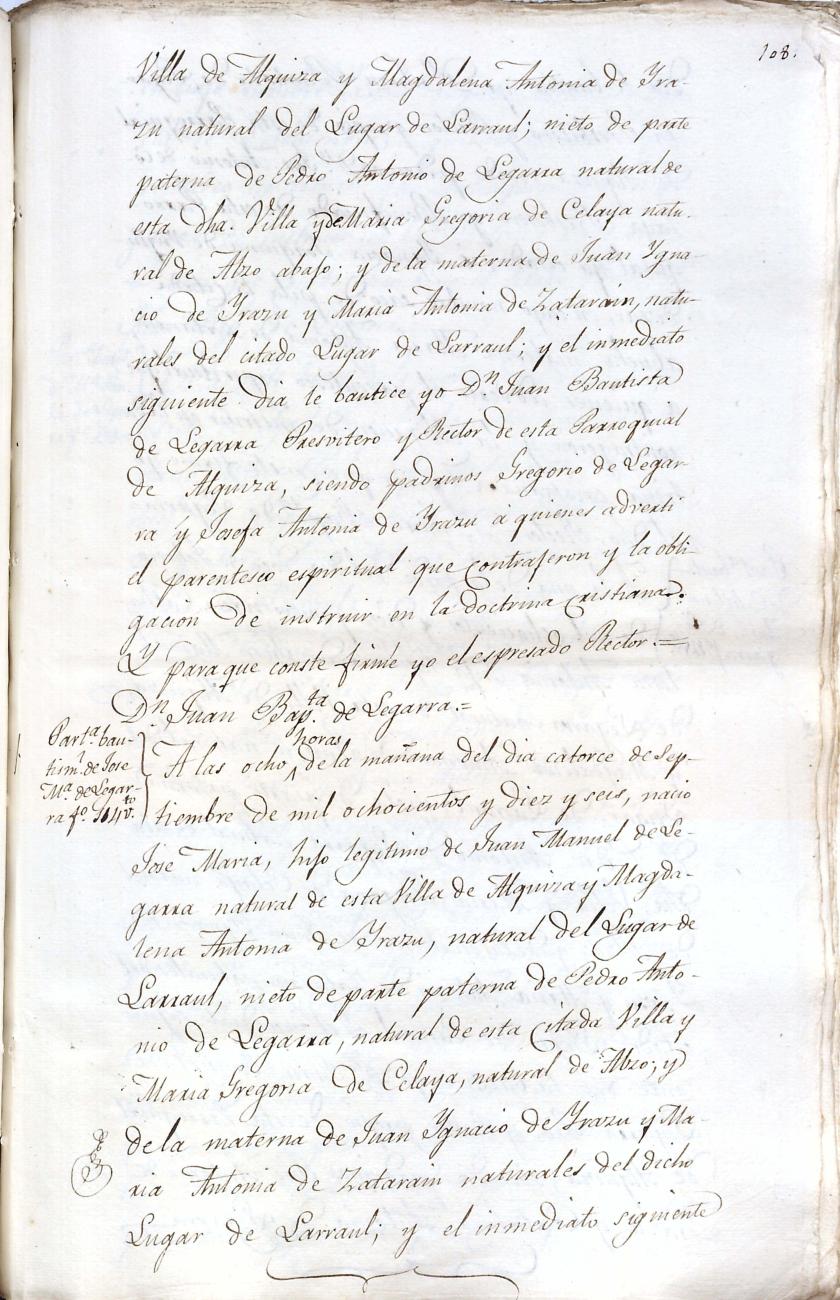 108.
Villa de Alquiza y Magdalena Antonia de Yra-
zu natural del Lugar de Larraul; nieto de parte
paterna de Pedro Antonio de Legarra natural de
esta dha. Villa y de Maria Gregoria de Celaya natu-
ral de Abzo abajo; y de la materna de Juan Ygna-
cio de Yrazu y Maria Antonia de Zatarain, natu-
rales del citado Lugar de Larraul; y el inmediato
siguiente dia le bautice yo Dn. Juan Bautista
de Legarra Presvitero y Rector de esta Parroquial
de Alquiza, siendo padrinos Gregorio de Legar-
ra y Josefa Antonia de Yrazu á quienes adverti
el parentesco espiritual que contrajeron y la obli-
gacion de instruir en la doctrina cristiana.
Y para que conste firmé yo el espresado Rector.=
Dn. Juan Bapta. de Legarra.=
Parta. bau-
tism. de Jose
Ma. de Legar-
ra fo. 114 vto.
A las ocho horas de la mañana del dia catorce de Sep-
tiembre de mil ochocientos y diez y seis, nacio
Jose Maria, hijo legitimo de Juan Manuel de Le-
garra natural de esta Villa de Alquiza y Magda-
lena Antonia de Yrazu, natural del Lugar de
Larraul, nieto de parte paterna de Pedro Anto-
nio de Legarra, natural de esta citada Villa y
Maria Gregoria de Celaya, natural de Abzo; y
de la materna de Juan Ygnacio de Yrazu y Ma-
ria Antonia de Zatarain naturales del dicho
Lugar de Larraul; y el inmediato siguiente